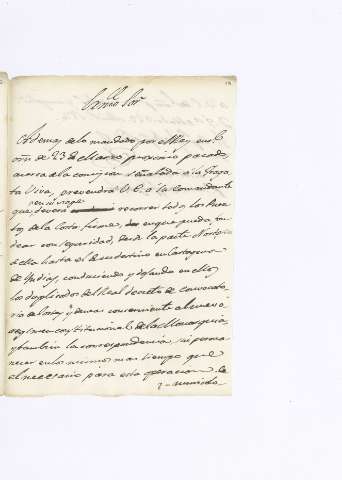 Exmo Sor
Ademas de lo mandado por el Rey en Rl
orn de 23 de Marzo proximo pasado,
acerca de la comision señalada a la Fraga
ta Viva, prevendrá V.E. a su Comandante
en su viage
que deverá recorrer todos los Puer
tos de la Costa firme, en que pueda fon
dear con seguridad, desde la parte
de ella hasta el de su destino en Cartagena
de Yndias, conduciendo y dejando en ellos
los duplicados del Real decreto de convocato
ria de Cortes, y demas concerniente al nuevo
regimen constitucional de la Monarquia,
y tambien la correspondencia, sin perma
necer en los mismos mas tiempo que el
el necesario para esta operacion de